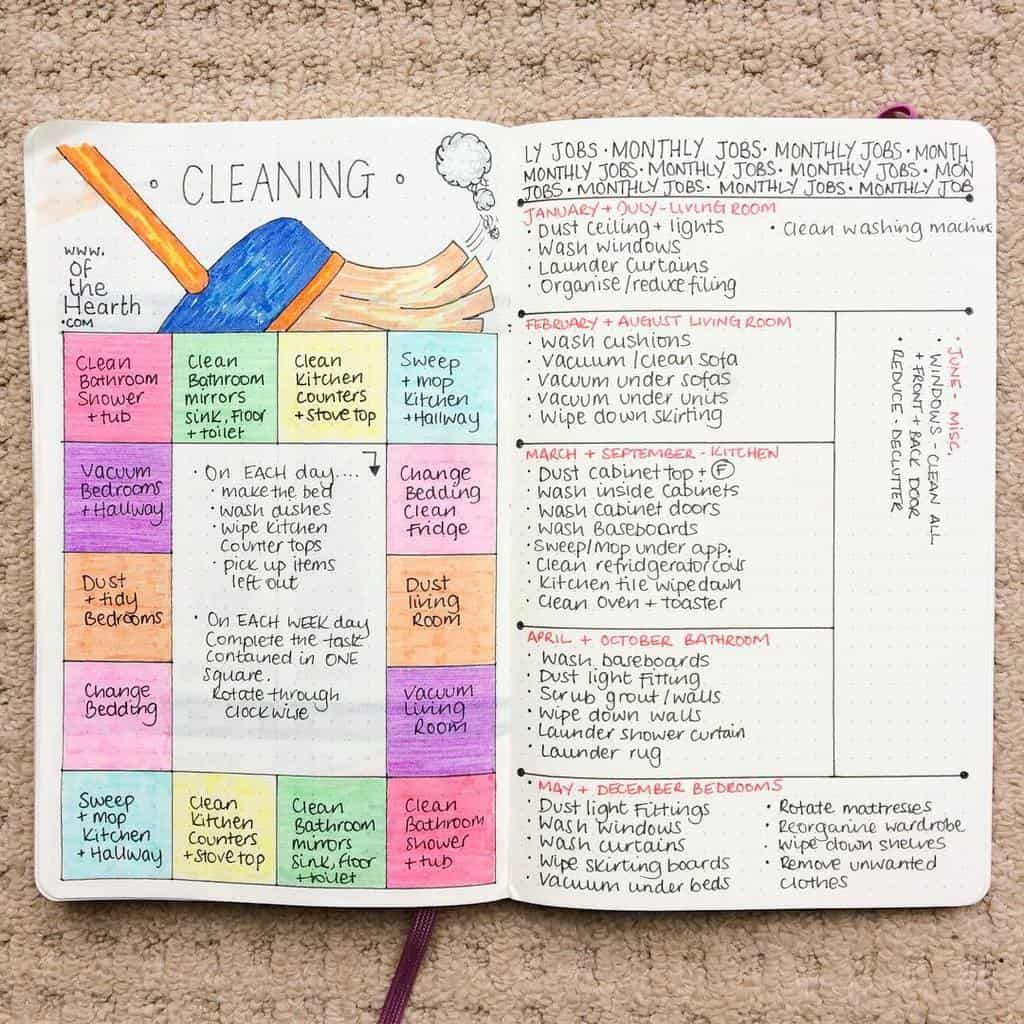 • CLEANING •
www.
of
the
Hearth
.COM
Clean
Bathroom
Shower
+ tub
Clean
Bathroom
mirrors
sink, floor
+ toilet
Clean
Kitchen
counters
+ stove top
Sweep
+ mop
Kitchen
+ Hallway
Vacuum
Bedrooms
+ Hallway
• On EACH day....
• make the bed
• wash dishes
• wipe kitchen
Counter tops
• pick up items
left out
• On EACH WEEK day
Complete the task
Contained in ONE
square.
Rotate through
clockwise
Change
Bedding
Clean
Fridge
Dust
+ tidy
Bedrooms
Dust
living
Room
Change
Bedding
Vacuum
Living
Room
Sweep
+ mop
Kitchen
+ Hallway
Clean
Kitchen
Counters
+ stove top
Clean
Bathroom
mirrors
sink, floor
+ toilet
Clean
Bathroom
shower
+ tub
LY JOBS • MONTHLY JOBS • MONTHLY JOBS • MONTH
MONTHLY JOBS • MONTHLY JOBS • MONTHLY JOBS • MON
JOBS • MONTHLY JOBS • MONTHLY JOBS • MONTHLY JOB
JANUARY + JULY - LIVING ROOM
• Dust ceiling + lights
• Wash windows
• Launder Curtains
• Organise / reduce filing
• Clean washing machine
FEBRUARY + AUGUST LIVING ROOM
• wash cushions
• Vacuum / clean sofa
• Vacuum under sofas
• Vacuum under units
• Wipe down skirting
• JUNE - MISC.
• WINDOWS - CLEAN ALL
+ FRONT + BACK DOOR
• REDUCE - DECLUTTER
MARCH + SEPTEMBER - KITCHEN
• Dust cabinet top + F
• Wash inside Cabinets
• Wash cabinet doors
• Wash Baseboards
• Sweep/Mop under app.
• Clean refridgerator coils
• Kitchen tile wipedown
• Clean Oven + toaster
APRIL + OCTOBER BATHROOM
• Wash baseboards
• Dust light Fitting
• Scrub grout / walls
• Wipe down walls
• Launder shower curtain
• Launder rug
• MAY + DECEMBER BEDROOMS
• Dust light Fittings
• Wash windows
• Wash curtains
• Wipe skirting boards
• Vacuum under beds
• Rotate mattresses
• Reorganine wardrobe
• Wipe down shelves
• Remove unwanted
clothes